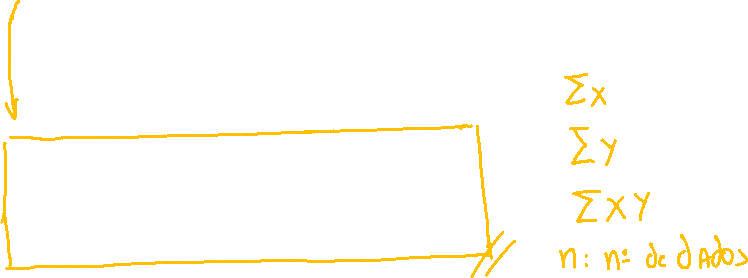 Σx
Σy
Σxy
n: nº de dAdos